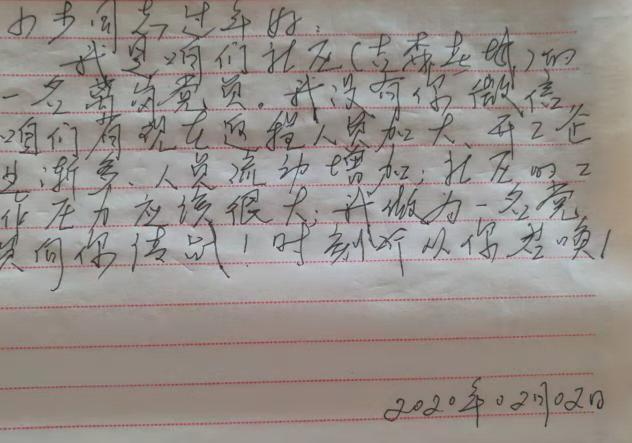 小步同志,过年好:
我是咱们社区(吉森)的
一名离岗党员。我没有你微信,
咱们看现在返程人员加大、开工企
业渐多、人员流动增加;社区的工
作压力应该很大;我做为一名党
员向你请战!时刻听从你差唤!
2020年02月02日